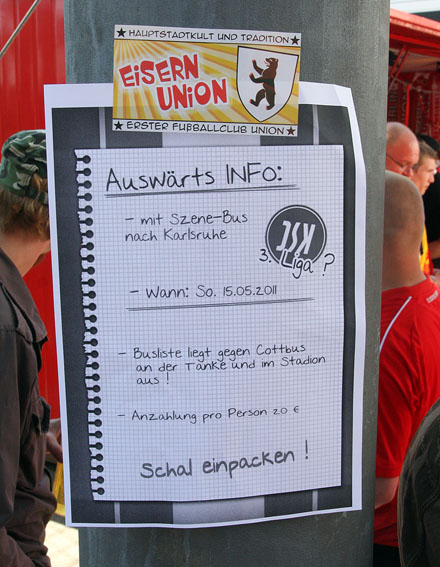 ★ HAUPTSTADTKULT UND TRADITION ★
EiSERN
UNiON
★ ERSTER FUßBALLCLUB UNION ★
Auswärts INFo:
- mit Szene-Bus
nach Karlsruhe
KSC
3. Liga ?
- Wann: So. 15.05.2011
- Busliste liegt gegen Cottbus
an der Tanke und im Stadion
aus !
- Anzahlung pro Person 20 €
Schal einpacken !